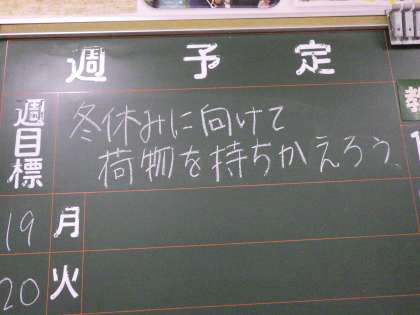 週予定
週目標
冬休みに向けて
荷物を持ちかえろう、
19 月
20 火
教